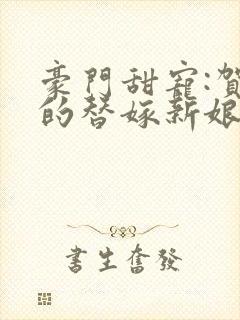 豪門甜寵:賀
的替嫁新娘
書生奮發